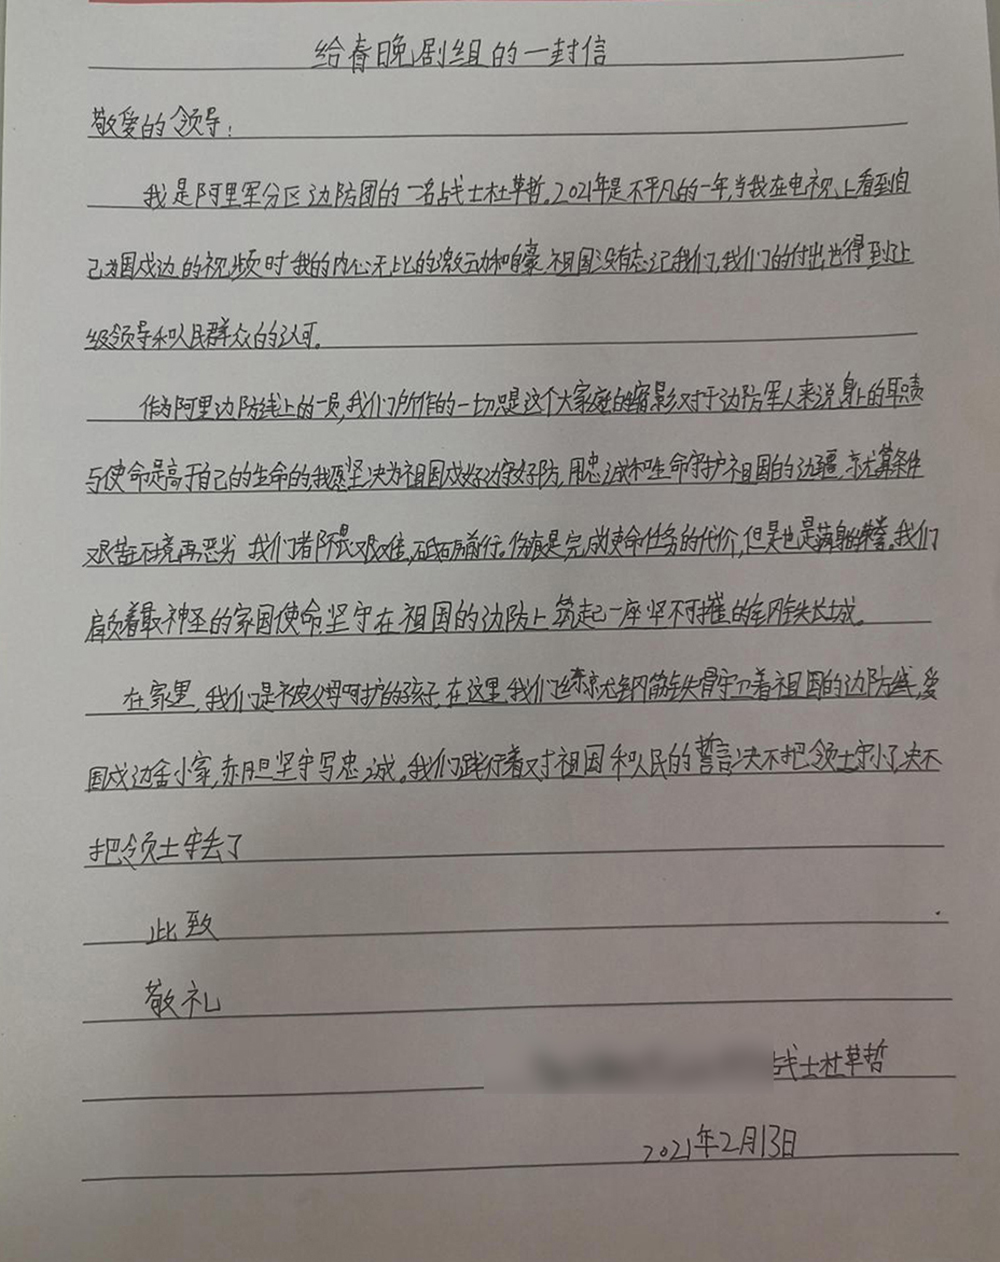 给春晚剧组的一封信
敬爱的领导:
我是阿里军分区边防团的一名战士杜草哲。2021年是不平凡的一年,当我在电视上看到自
己为国戍边的视频时我的内心无比的激动和自豪 祖国没有忘记我们,我们的付出也得到了上
级领导和人民群众的认可。
作为阿里边防线上的一员,我们所作的一切只是这个大家庭的缩影对于边防军人来说身上的职责
与使命是高于自己的生命的,我愿坚决为祖国戍好边守好防,用忠诚和生命守护祖国的边疆,就算条件
艰苦环境再恶劣 我们都不畏艰难,砥砺前行。伤痕是完成使命任务的代价,但是也是满身的荣誉。我们
肩负着最神圣的家国使命坚守在祖国的边防上筑起一座坚不可摧的钢铁长城。
在家里,我们是被父母呵护的孩子,在这里我们丝就尤钢筋铁骨守卫着祖国的边防线,爱
国戍边舍小家,赤胆坚守写忠诚。我们践行着对祖国和人民的誓言决不把领土守小了,决不
把领土守丢了
此致
敬礼
战士杜草哲
2021年2月13日